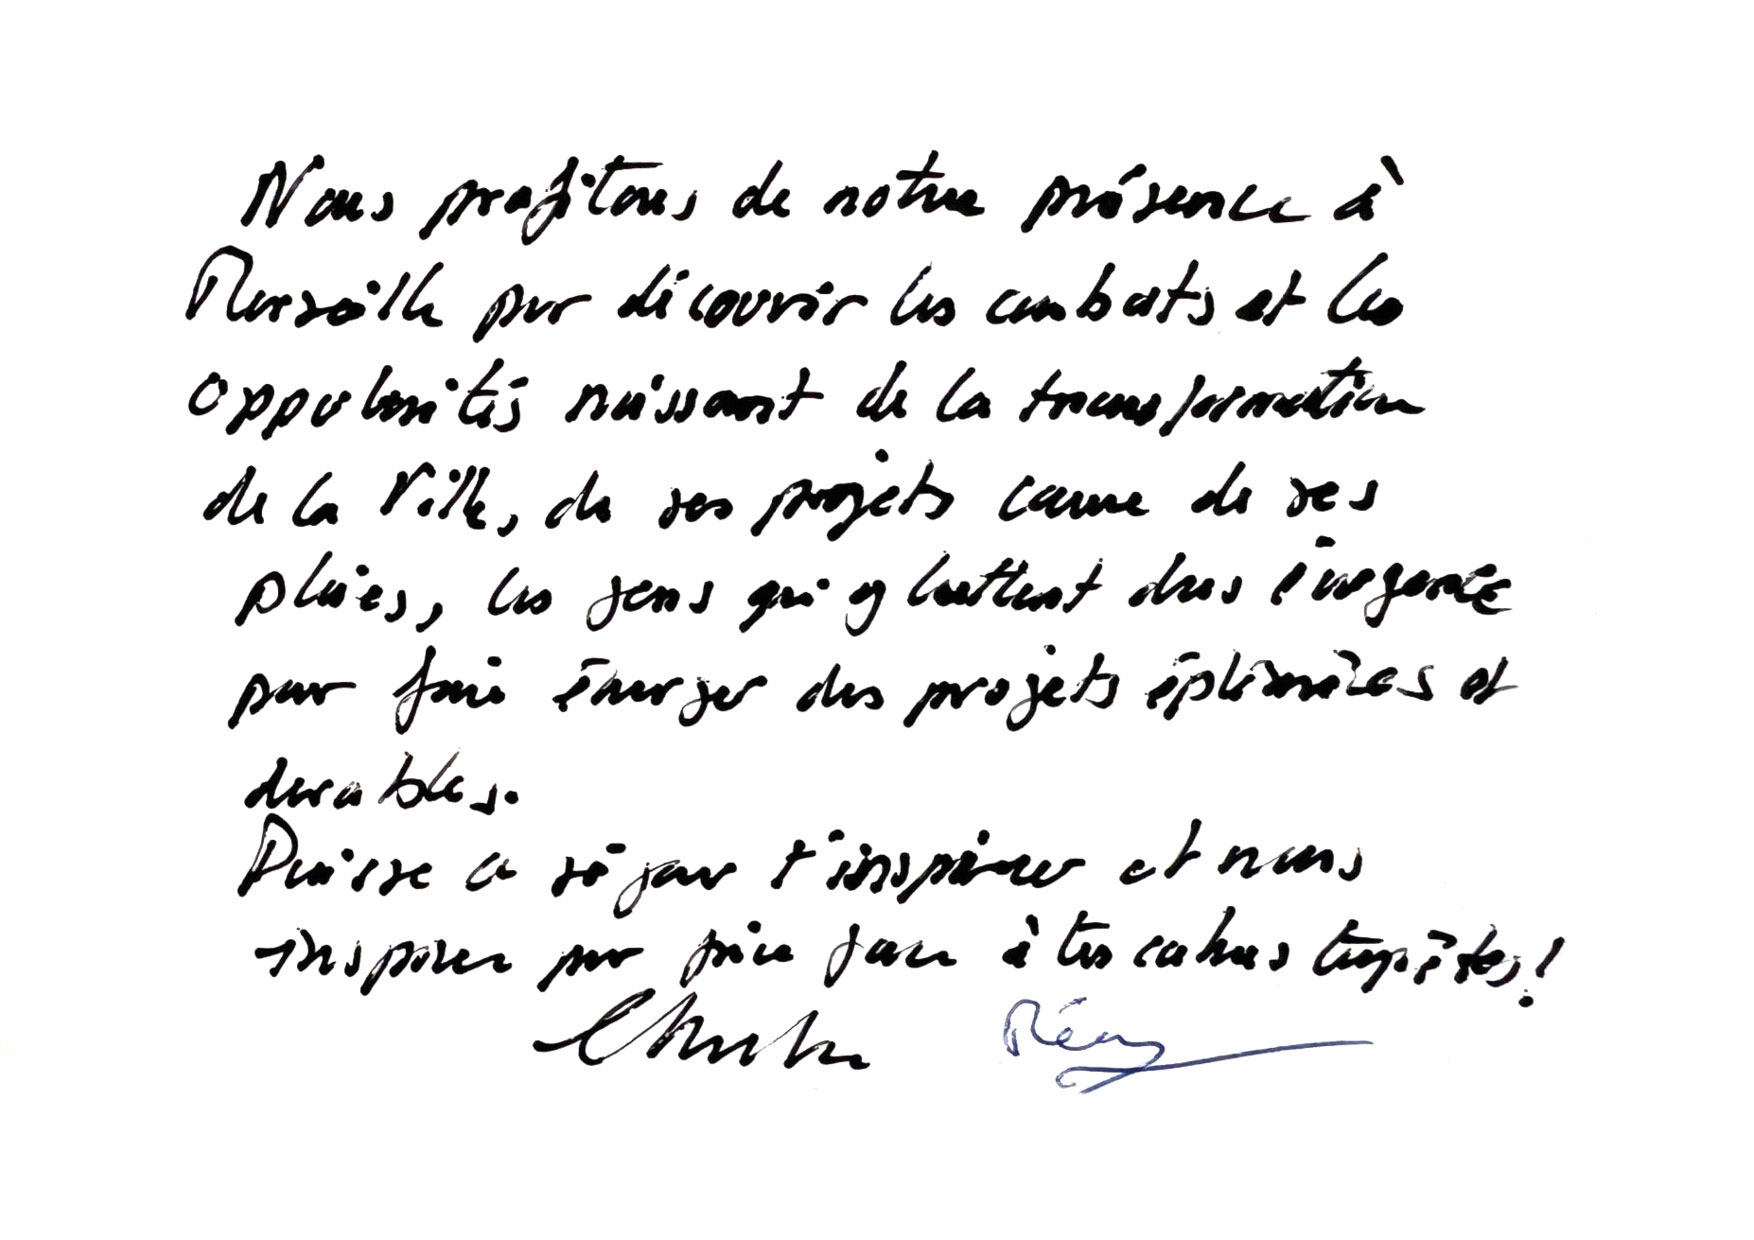 Nous profitons de notre présence à
Marseille pour découvrir les combats et les
opportunités naissant de la transformation
de la Ville, de ses projets comme de ses
plaies, les gens qui y luttent dans
pour faire émerger des projets éphémères et
durables.
Puisse ce séjour t'inspirer et nous
inspirer pour faire face à tes tempêtes!
Rémy